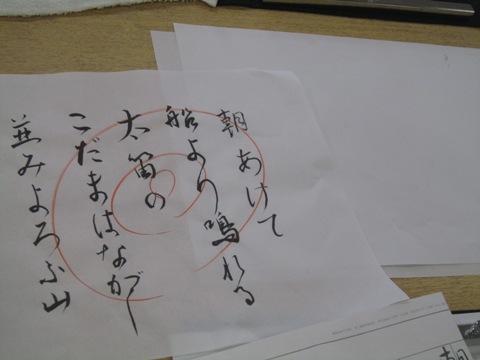 朝あけて
船より鳴れる
太笛の
こだまはながし
並みよろふ山